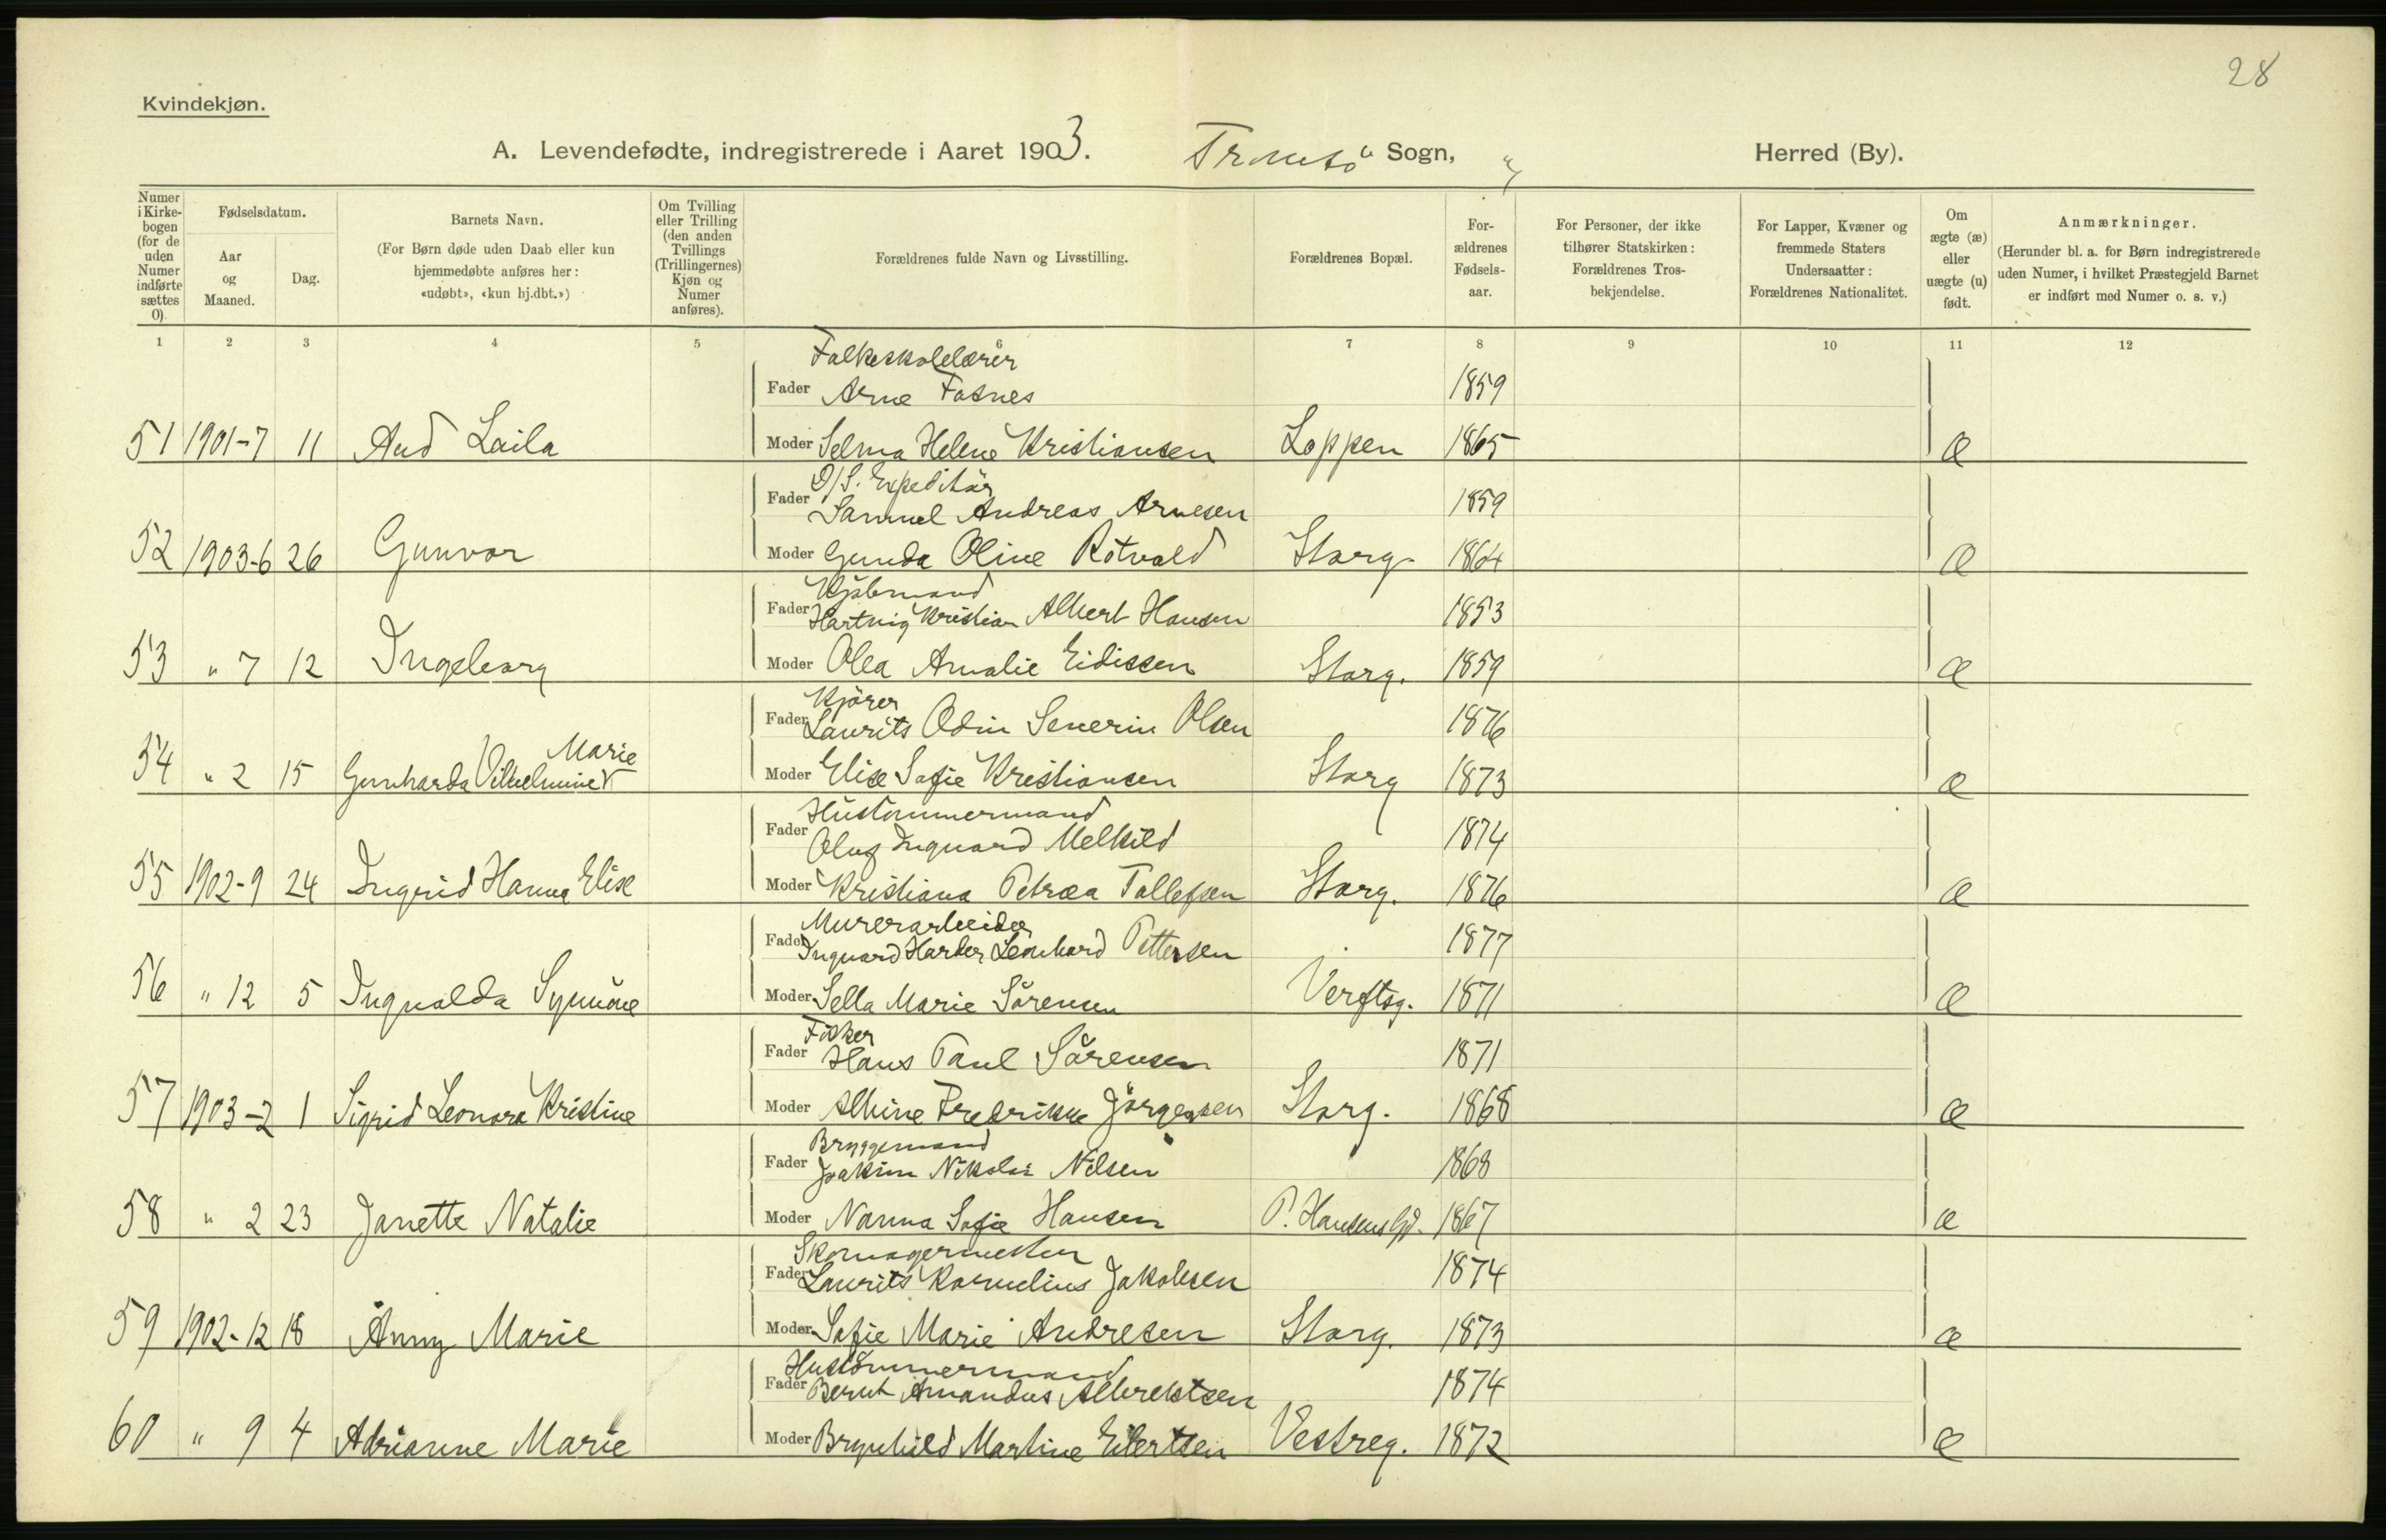 28
Kvindekjøn.
A. Levendefødte, indregistrerede i Aaret 1903. Tromsø Sogn, " Herred (By).
Numer i Kirkebogen (for de uden Numer indførte sættes 0).
Fødselsdatum.
Aar og Maaned.
Dag.
Barnets Navn.
(For Børn døde uden Daab eller kun hjemmedøbte anføres her: «udøbt», «kun hj.dbt.»)
Om Tvilling eller Trilling (den anden Tvillings (Trillingernes) Kjøn og Numer anføres).
Forældrenes fulde Navn og Livsstilling.
Forældrenes Bopæl.
Forældrenes Fødselsaar.
For Personer, der ikke tilhører Statskirken: Forældrenes Trosbekjendelse.
For Lapper, Kvæner og fremmede Staters Undersaatter: Forældrenes Nationalitet.
Om ægte (æ) eller uægte (u) født.
Anmærkninger.
(Herunder bl. a. for Børn indregistrerede uden Numer, i hvilket Præstegjeld Barnet er indført med Numer o. s. v.)
1 2 3 4 5 6 7 8 9 10 11 12
Folkeskolelærer
Fader Arne Fosnes 1859
51 1901-7 11 Aud Laila Moder Selma Helene Kristiansen Loppen 1865 æ
D/S. Expeditör
Fader Samuel Andreas Arnesen 1859
52 1903-6 26 Gunvor Moder Gunda Oline Rotvold Storg. 1864 æ
Kjøbmand
Fader Hartvig Kristian Albert Hansen 1853
53 " 7 12 Ingeborg Moder Olea Amalie Eidissen Storg. 1859 æ
Kjörer
Fader Laurits Odin Severin Olsen 1876
Marie
54 " 2 15 Gunharda Vilhelmine Moder Elise Sofie Kristiansen Storg 1873 æ
Hustømmermand
Fader Oluf Ingvard Melkild 1874
55 1902-9 24 Ingrid Hanna Elise Moder Kristiana Petræa Tollefsen Storg. 1876 æ
Murerarbeider
Fader Ingvard Harber Leonhard Pettersen 1877
56 " 12 5 Ingvalda Synnöve Moder Sella Marie Sörensen Verftsg. 1871 æ
Fisker
Fader Hans Paul Sörensen 1871
57 1903-2 1 Sigrid Leonora Kristine Moder Albine Fredrikke Jörgensen Storg. 1868 æ
Bryggemand
Fader Joakim Nikolai Nilsen 1868
58 " 2 23 Janette Natalie Moder Nanna Sofie Hansen P. Hansens Gd. 1867 æ
Skomagermester
Fader Laurits Kornelius Jakobsen 1874
59 1902-12 18 Anny Marie Moder Sofie Marie Andresen Storg. 1873 æ
Hustömmermand
Fader Bernt Amandus Albrektsen 1874
60 " 9 4 Adrianne Marie Moder Brynhild Martine Eilertsen Vestreg. 1872 æ